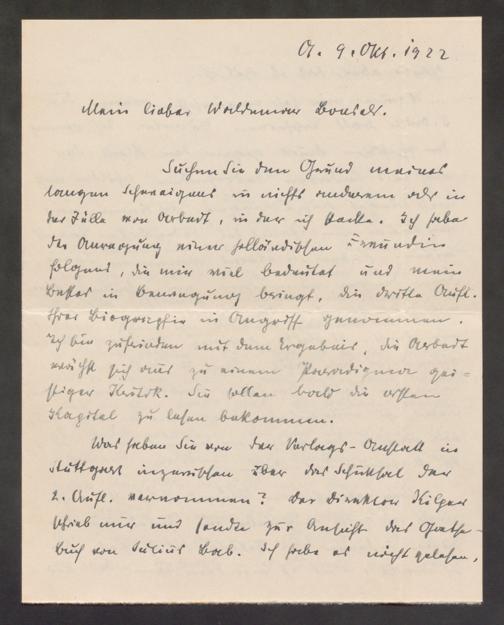 A. 9. Okt. 1922
Mein lieber Waldemar Bonsels.
Suchen Sie den Grund meines
langen Schweigens in nichts anderem als in
der Fülle von Arbeit, in der ich stecke. Ich habe
der Anregung einer holländischen Freundin
folgend, die mir viel bedeutet und mein
Bestes in Bewegung bringt, die dritte Aufl.
Ihrer Biographie in Angriff genommen.
Ich bin zufrieden mit dem Ergebnis, die Arbeit
wächst sich aus zu einem Paradigma gei=
stiger Kritik. Sie sollen bald die ersten
Kapitel zu lesen bekommen.
Was haben Sie von der Verlags-Anstalt in
Stuttgart inzwischen über das Schicksal der
2. Aufl. vernommen? Der Direktor Kilper
schrieb mir und sandte zur Ansicht das Goethe-
buch von Julius Bab. Ich habe es nicht gelesen,